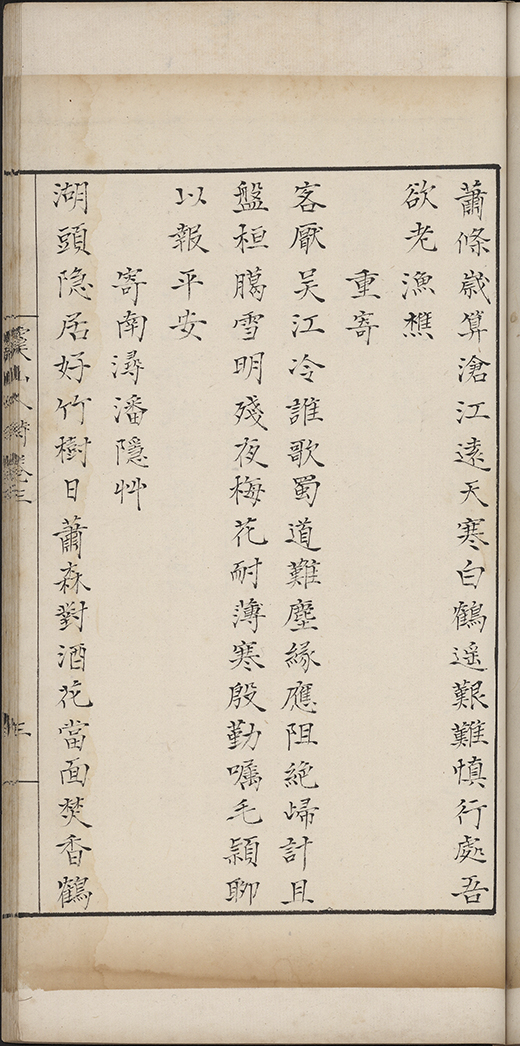 蕭條嵗算滄江逺天寒白鶴遥艱難慎行處吾
欲老漁樵
重寄
客厭吴江冷誰歌蜀道難塵緣應阻絶歸計且
盤桓臈雪明殘夜梅花耐薄寒殷勤囑毛頴聊
以報平安
寄南潯潘隱艸
湖頭隐居好竹樹日蕭森對酒花當面焚香鶴